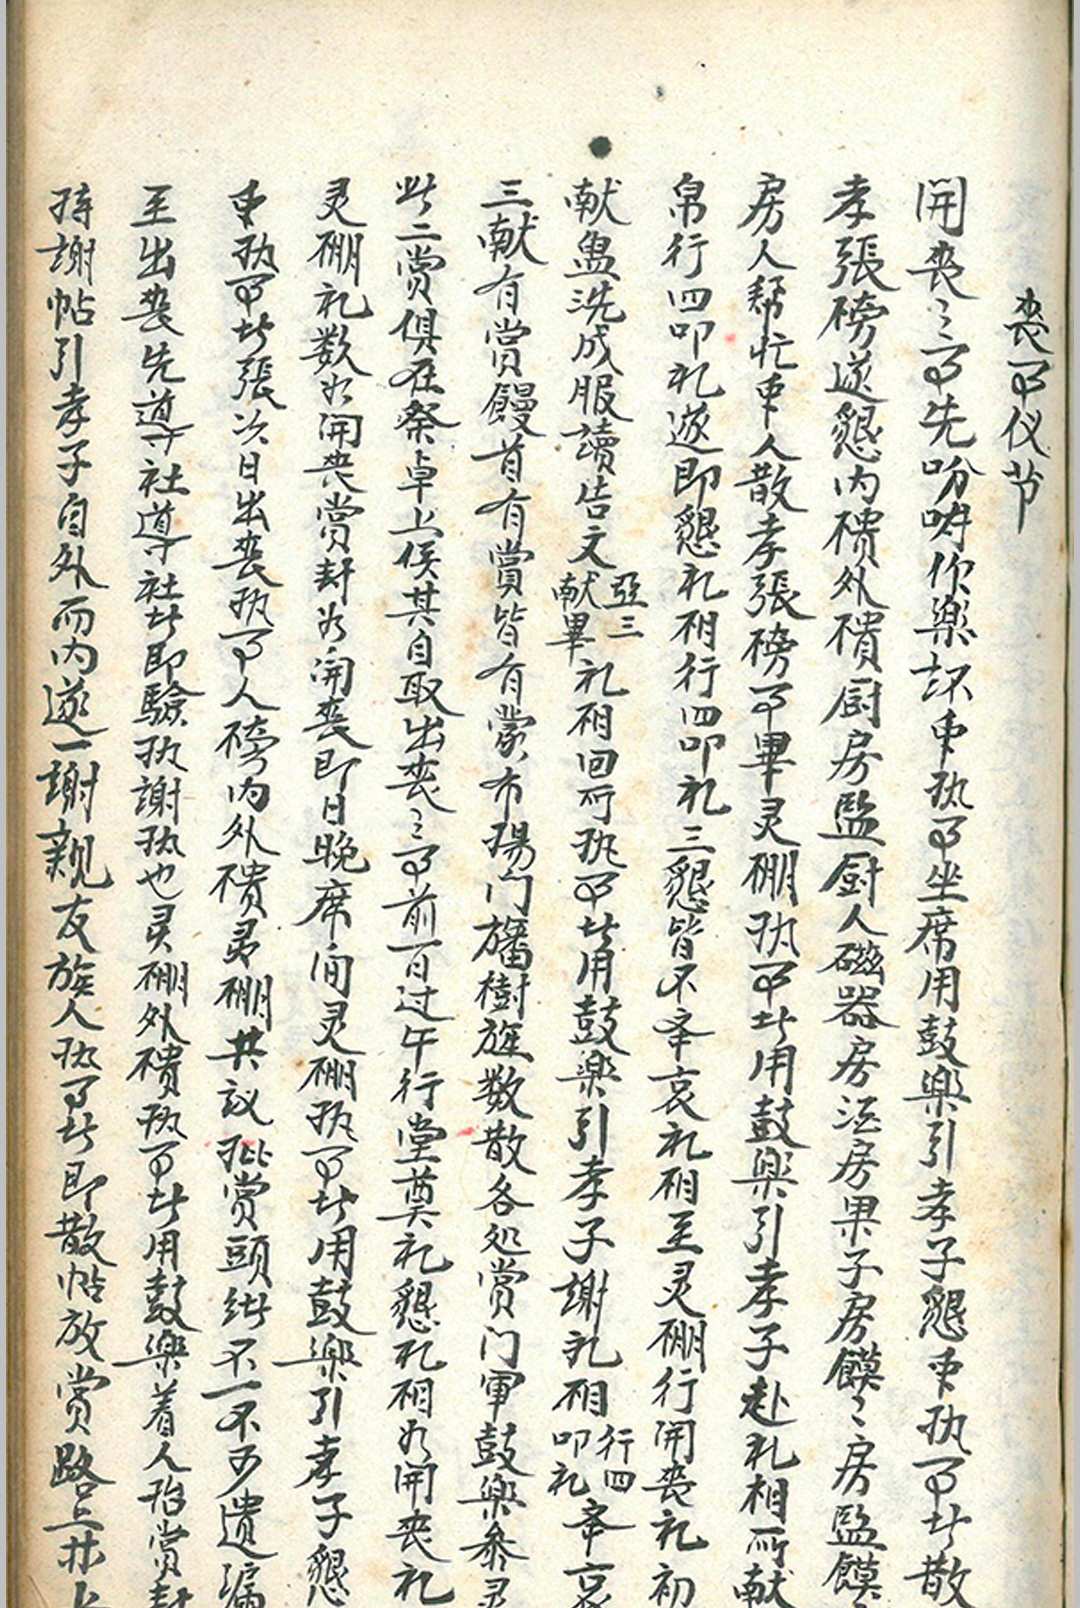 丧事仪节
開丧之事先吩咐作樂次中执事坐席用鼓樂引孝子懇中执事者散
孝張榜遂懇内樻外樻厨房監厨人磁器房酒房果子房饃〻房監饃
房人帮忙中人散孝張榜事畢灵棚执事者用鼓樂引孝子赴礼相所献
帛行四叩礼遂即懇礼相行四叩礼三懇皆不举哀礼相至灵棚行開丧礼初
献盥洗成服讀告文亞三献畢礼相回所执事者用鼓樂引孝子謝礼相行四叩礼举哀
三献有賞饅首有賞皆有蒙布揚门旛樹旌数散各処賞门軍鼓樂参灵
此二賞俱在祭卓上候其自取出丧之事前一日过午行堂奠礼懇礼相如開丧礼
灵棚礼数如開丧賞封如開丧即日晚席间灵棚执事者用鼓樂引孝子懇
中执事者張次日出丧执事人榜内外樻灵棚共议批賞頭绪不一不可遺漏
至出丧先導社導社者即驗执謝执也灵棚外樻执事者用鼓樂着人抬賞封
持謝帖引孝子自外而内遂一謝親友族人执事者即散帖放賞路上